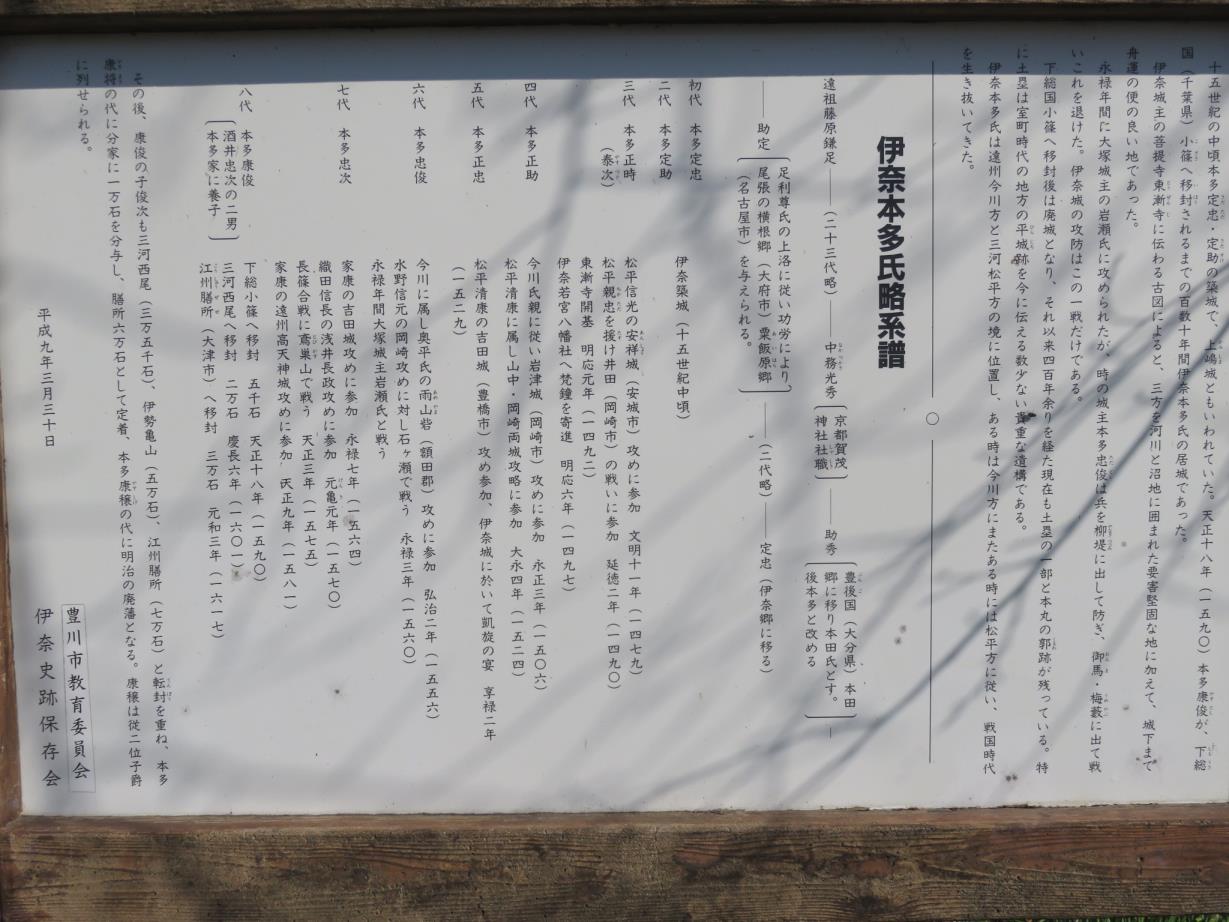 十五世紀の中頃本多定忠・定助の築城で、上嶋城ともいわれている。天正十八年（一五九〇）本多康俊が、下総
国（千葉県）小篠へ移封されるまでの百数十年間伊奈本多氏の居城であった。
伊奈城主の菩提寺東漸寺に伝わる古図によると、三方を河川と沼地に囲まれた要害堅固な地に加えて、城下まで
舟運の便の良い地であった。
永禄年間に大塚城主の岩瀬氏に攻められたが、時の城主本多忠俊は兵を柳堤に出して防ぎ、御馬・梅藪に出て戦
いこれを退けた。伊奈城の攻防はこの一戦だけである。
下総国小篠へ移封後は廃城となり、それ以来四百年余りを経た現在も土塁の一部と本丸の郭跡が残っている。特
に土塁は室町時代の地方の平城跡を今に伝える数少ない貴重な遺構である。
伊奈本多氏は遠州今川方と三河松平方の境に位置し、ある時は今川方にまたある時には松平方に従い、戦国時代
を生き抜いてきた。
○
伊奈本多氏略系譜
遠祖藤原鎌足――（二十三代略）――中務光秀〔京都賀茂神社社職〕――助秀〔豊後国（大分県）本田郷に移り本田氏とす。後本多と改める〕―
――助定〔足利尊氏の上洛に従い功労により、尾張の横根郷（大府市）粟飯原郷（名古屋市）を与えられる。〕――（二代略）――定忠（伊奈郷に移る）
初代　本多定忠　伊奈築城（十五世紀中頃）
二代　本多定助
三代　本多正時（泰次）　松平信光の安祥城（安城市）攻めに参加　文明十一年（一四七九）
松平親忠を援け井田（岡崎市）の戦いに参加　延徳二年（一四九〇）
東漸寺開基　明応元年（一四九二）
伊奈若宮八幡社へ梵鐘を寄進　明応六年（一四九七）
四代　本多正助　今川氏親に従い岩津城（岡崎市）攻めに参加　永正三年（一五〇六）
松平清康に属し山中・岡崎両城攻略に参加　大永四年（一五二四）
五代　本多正忠　松平清康の吉田城（豊橋市）攻め参加、伊奈城に於いて凱旋の宴　享禄二年
（一五二九）
六代　本多忠俊　今川に属し奥平氏の雨山砦（額田郡）攻めに参加　弘治二年（一五五六）
水野信元の岡崎攻めに対し石ヶ瀬で戦う　永禄三年（一五六〇）
永禄年間大塚城主岩瀬氏と戦う
七代　本多忠次　家康の吉田城攻めに参加　永禄七年（一五六四）
織田信長の浅井長政攻めに参加　元亀元年（一五七〇）
長篠合戦に鳶巣山で戦う　天正三年（一五七五）
家康の遠州高天神城攻めに参加　天正九年（一五八一）
八代　本多康俊〔酒井忠次の二男　本多家に養子〕　下総小篠へ移封　五千石　天正十八年（一五九〇）
三河西尾へ移封　二万石　慶長六年（一六〇一）
江州膳所（大津市）へ移封　三万石　元和三年（一六一七）
その後、康俊の子俊次も三河西尾（三万五千石）、伊勢亀山（五万石）、江州膳所（七万石）と転封を重ね、本多
康将の代に分家に一万石を分与し、膳所六万石として定着、本多康穣の代に明治の廃藩となる。康穣は従二位子爵
に列せられる。
平成九年三月三十日
豊川市教育委員会
伊奈史跡保存会